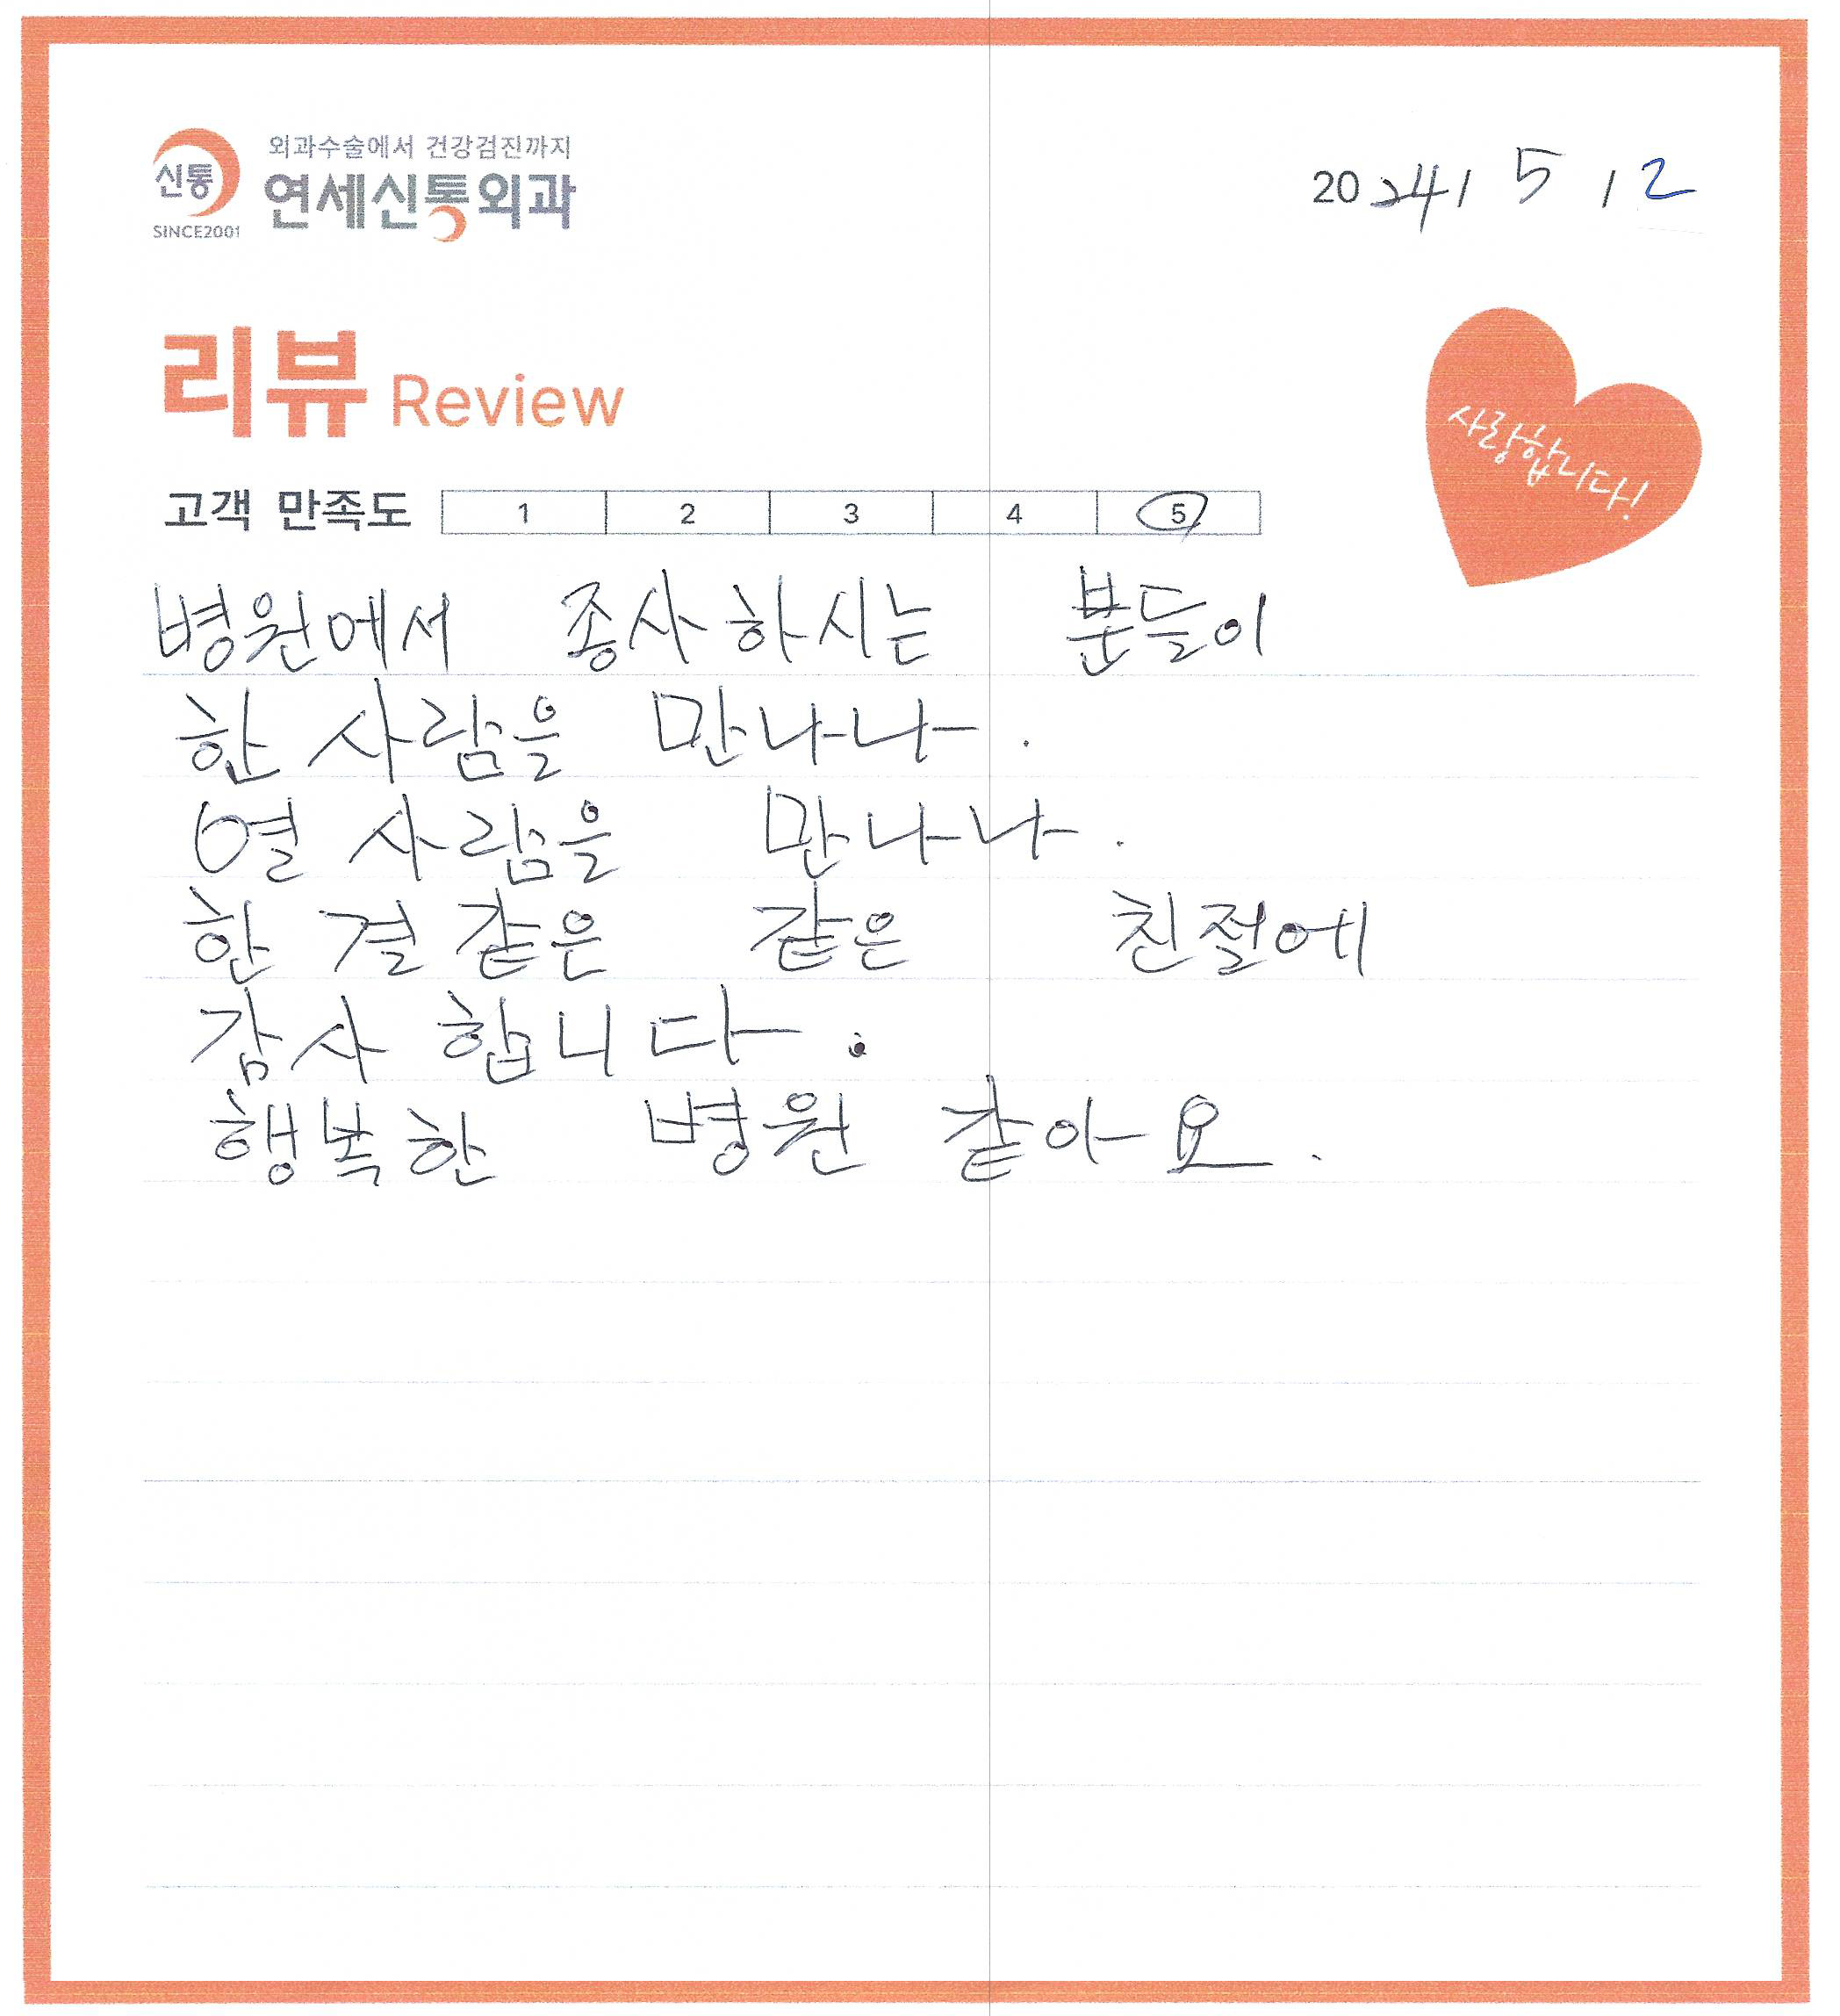 신통
SINCE2001
외과수술에서 건강검진까지
연세신통외과
2024 / 5 / 2
리뷰 Review
사랑합니다!
고객 만족도 1 2 3 4 5
병원에서 종사하시는 분들이
한 사람을 만나나.
열 사람을 만나나.
한 결 같은 같은 친절에
감사 합니다.
행복한 병원 같아요.